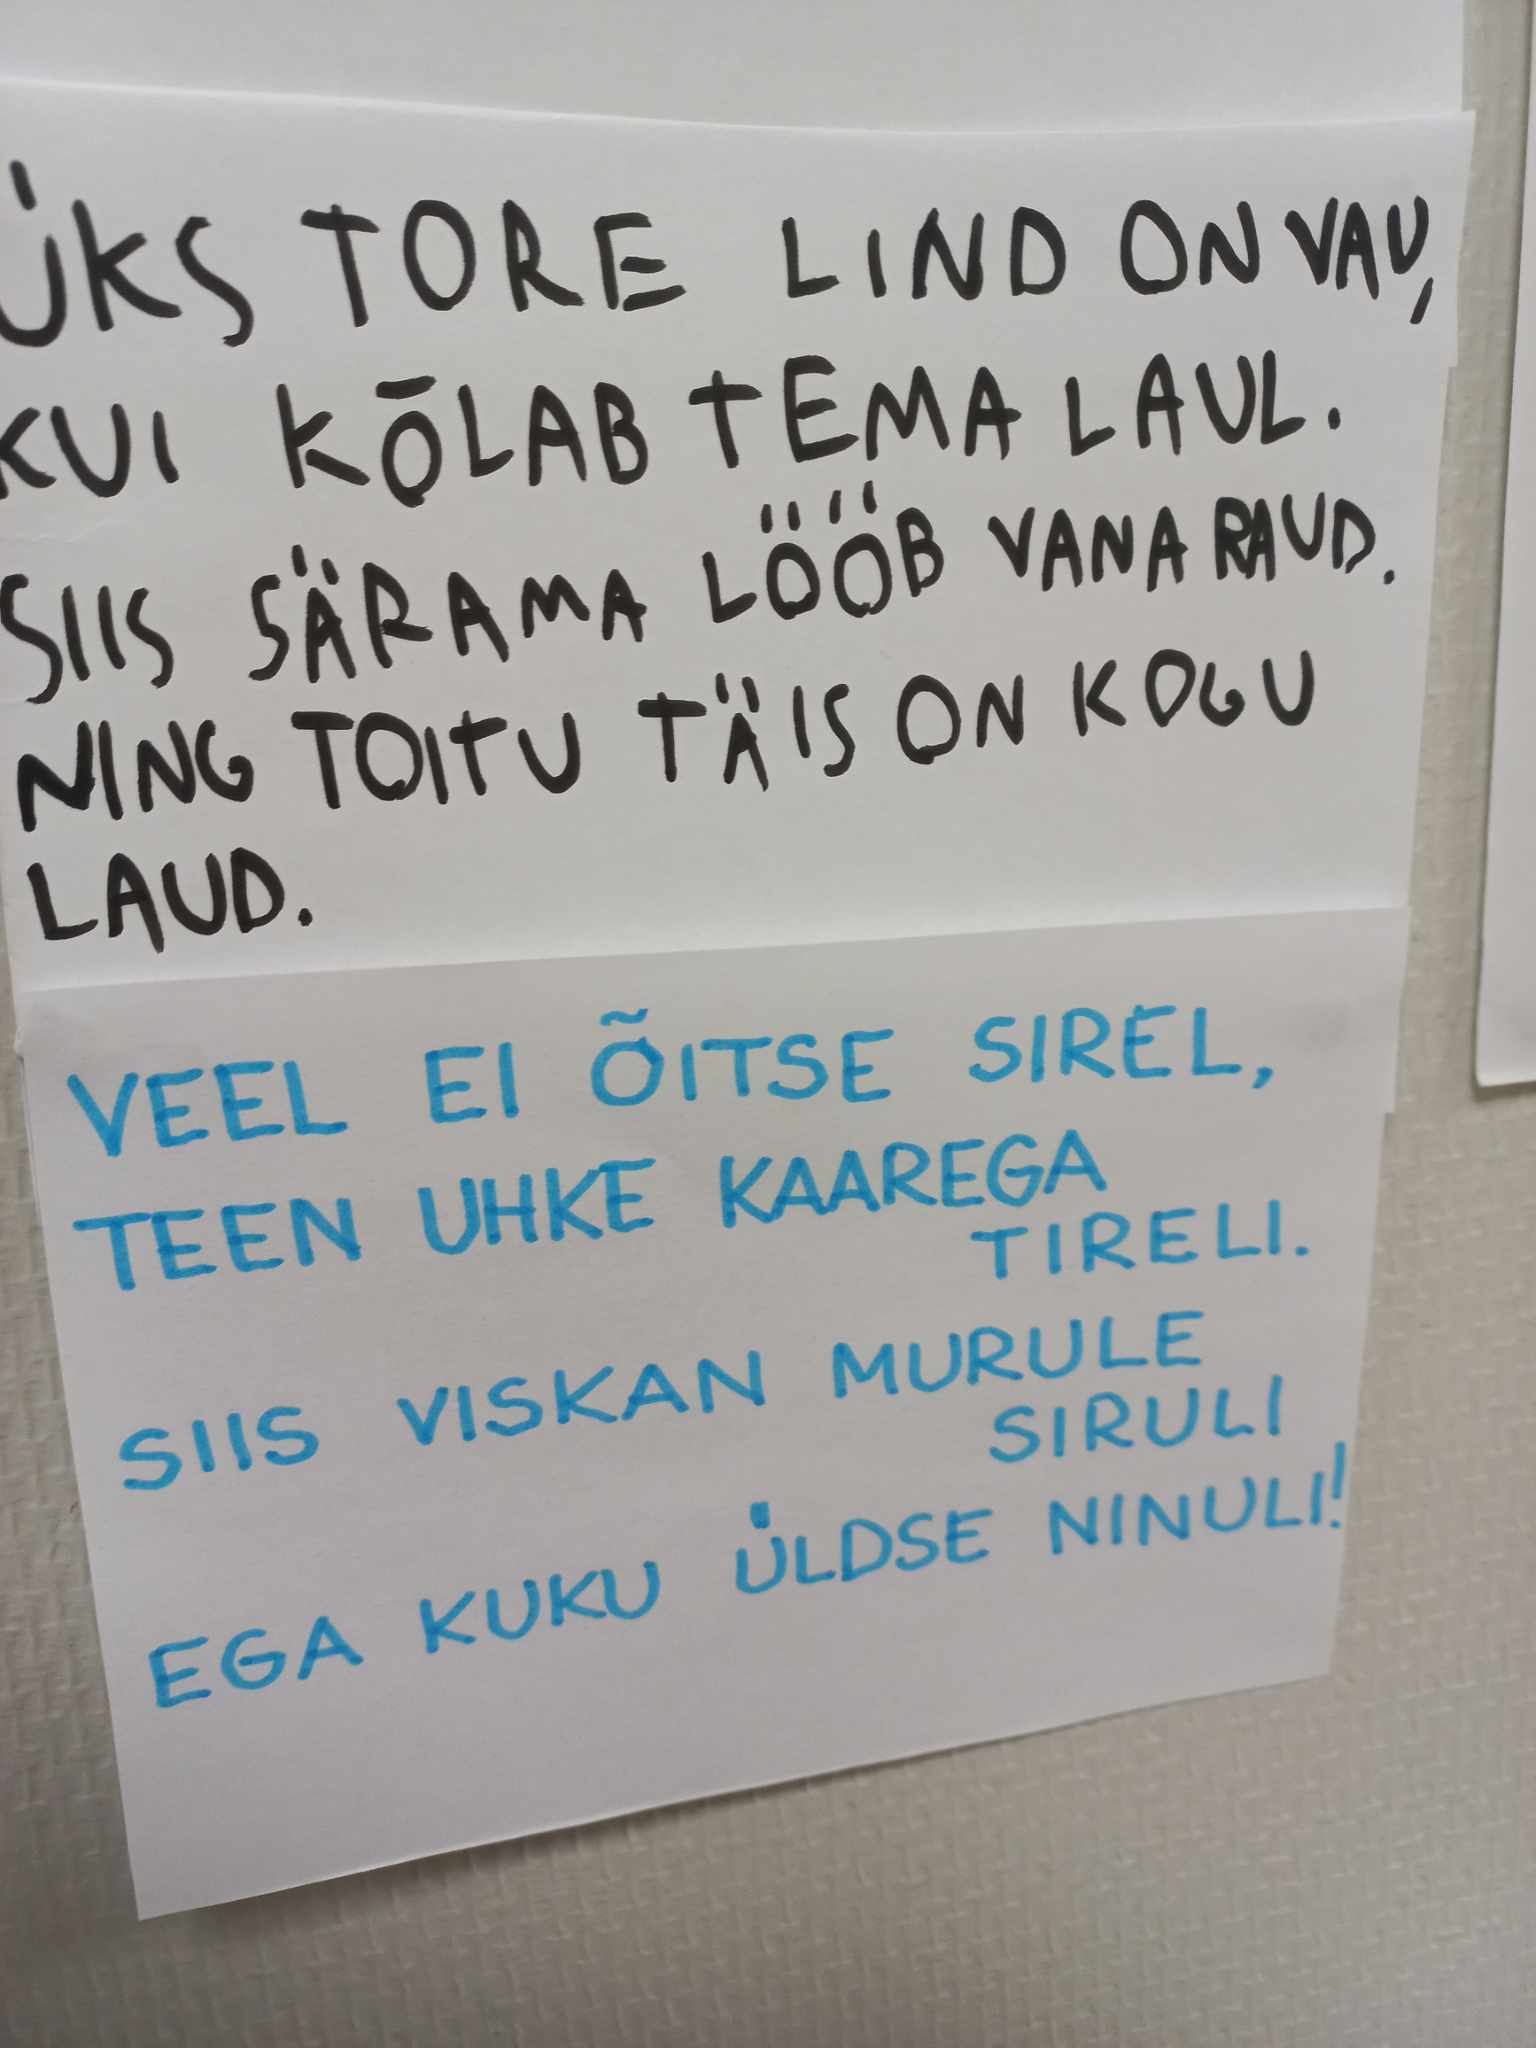 ÜKS TORE LIND ON VAU,
KUI KÕLAB TEMA LAUL.
SIIS SÄRAMA LÖÖB VANA RAUD.
NING TOITU TÄIS ON KOGU
LAUD.
VEEL EI ÕITSE SIREL,
TEEN UHKE KAAREGA
TIRELI.
SIIS VISKAN MURULE
SIRULI
EGA KUKU ÜLDSE NINULI!